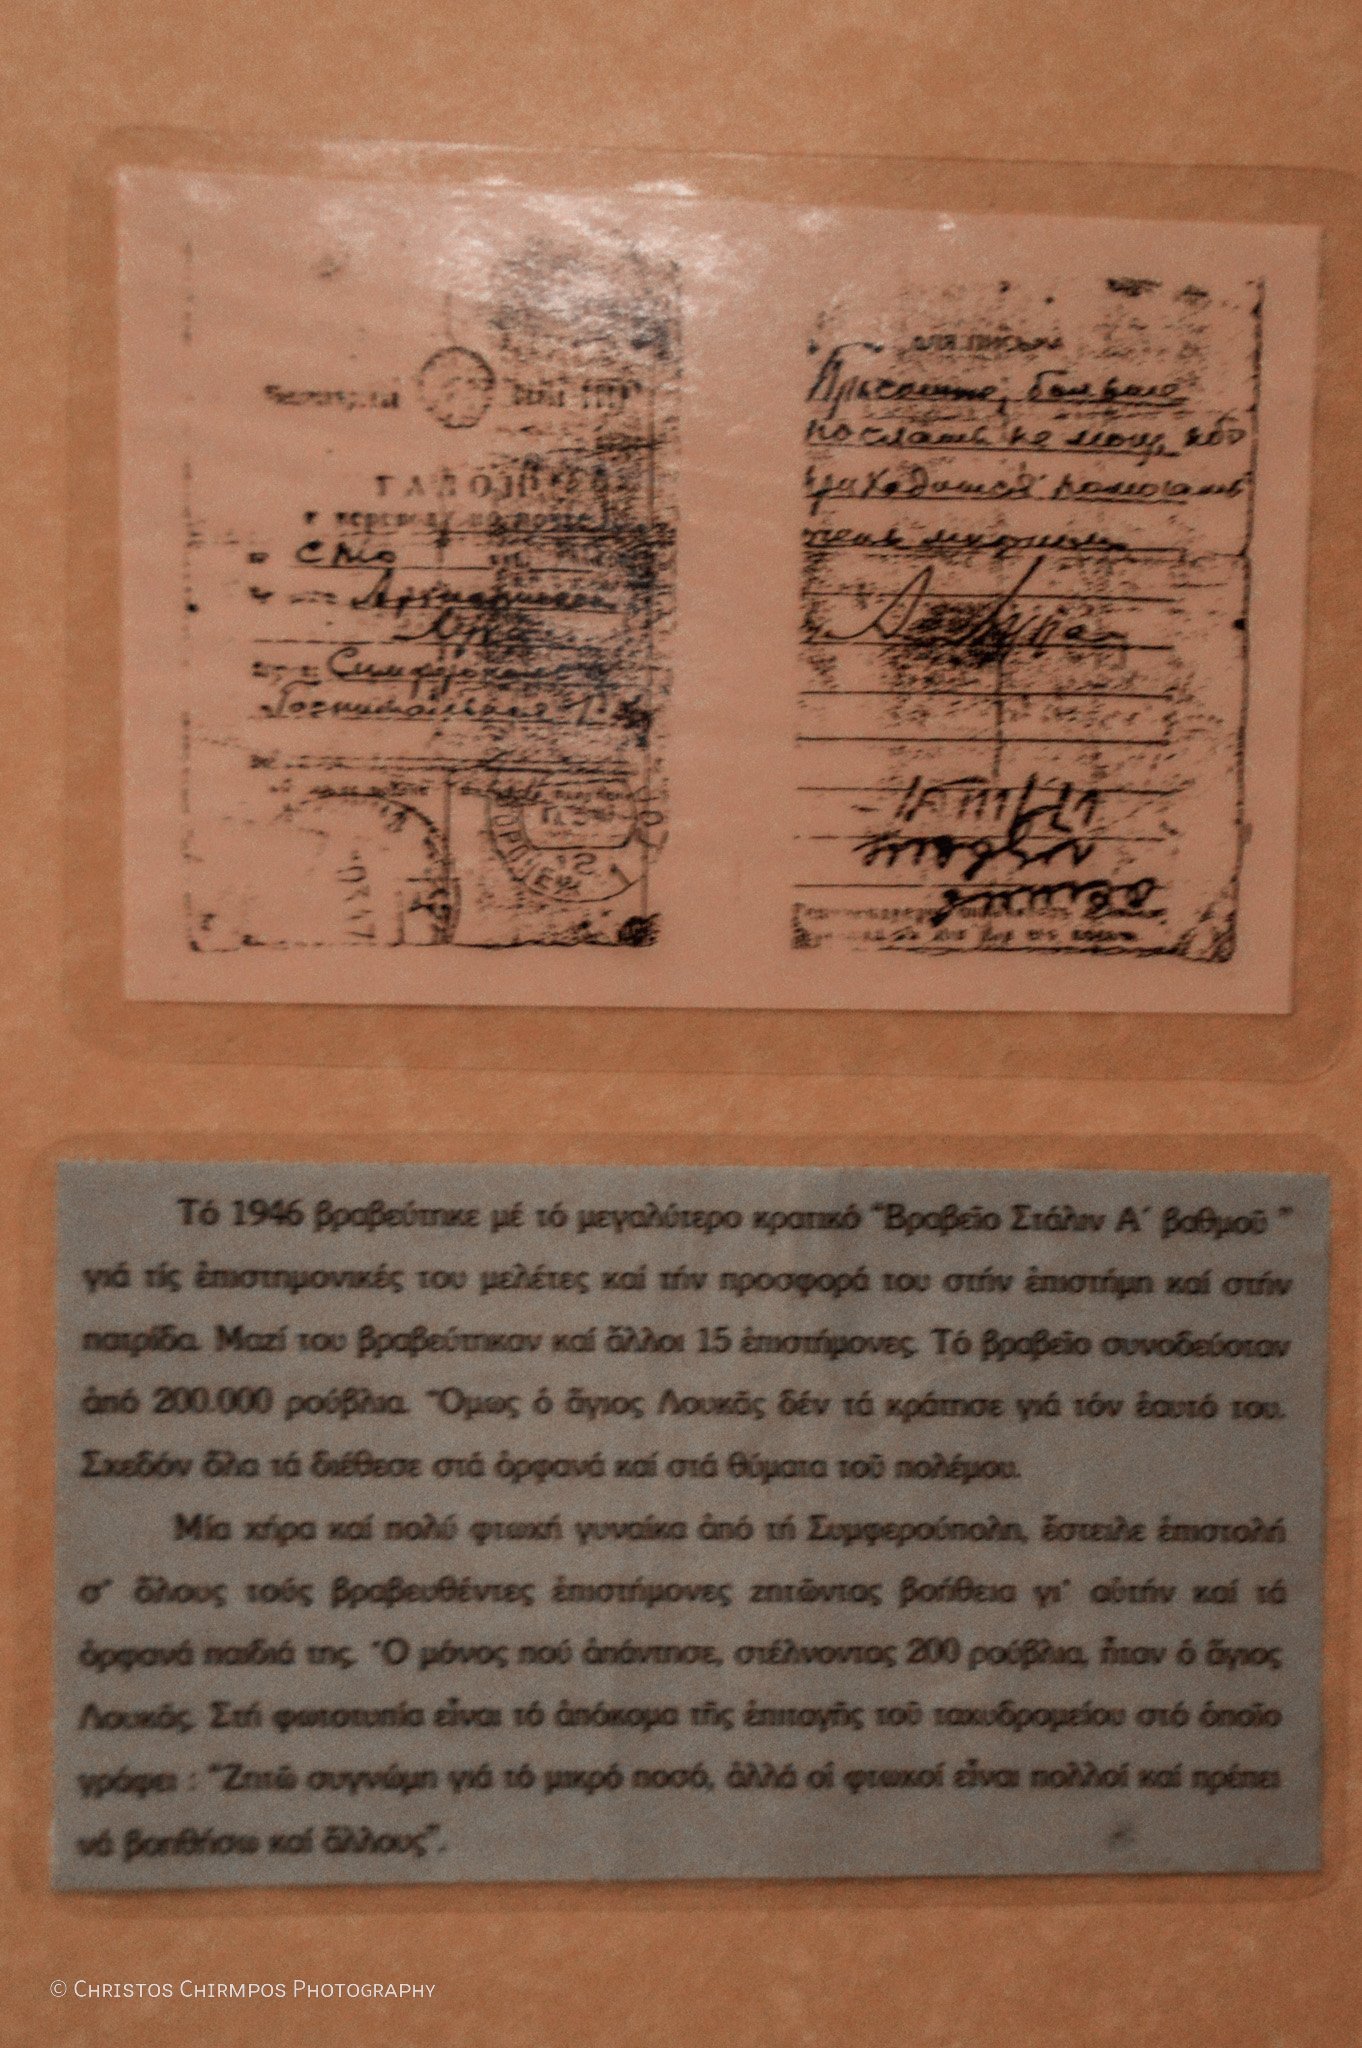 ТАЛОН
к переводу по почте
сто
Архиепископа
Луки
Симферополь
Госпитальная 1
для письма
Простите, больше
послать не могу, ибо
приходится помогать
очень многим
А. Лука
Τό 1946 βραβεύτηκε μέ τό μεγαλύτερο κρατικό "Βραβεῖο Στάλιν Α΄ βαθμοῦ "
γιά τίς ἐπιστημονικές του μελέτες καί τήν προσφορά του στήν ἐπιστήμη καί στήν
πατρίδα. Μαζί του βραβεύτηκαν καί ἄλλοι 15 ἐπιστήμονες. Τό βραβεῖο συνοδεύοταν
ἀπό 200.000 ρούβλια. Ὅμως ὁ ἅγιος Λουκᾶς δέν τά κράτησε γιά τόν ἑαυτό του.
Σχεδόν ὅλα τά διέθεσε στά ὀρφανά καί στά θύματα τοῦ πολέμου.
Μία χήρα καί πολύ φτωχή γυναίκα ἀπό τή Συμφερούπολη, ἔστειλε ἐπιστολή
σ' ὅλους τούς βραβευθέντες ἐπιστήμονες ζητῶντας βοήθεια γι' αὐτήν καί τά
ὀρφανά παιδιά της. Ὁ μόνος πού ἀπάντησε, στέλνοντας 200 ρούβλια, ἦταν ὁ ἅγιος
Λουκᾶς. Στή φωτοτυπία εἶναι τό ἀπόκομα τῆς ἐπιταγῆς τοῦ ταχυδρομείου στό ὁποῖο
γράφει : "Ζητῶ συγνώμη γιά τό μικρό ποσό, ἀλλά οἱ φτωχοί εἶναι πολλοί καί πρέπει
νά βοηθήσω καί ἄλλους".
© Christos Chirmpos Photography